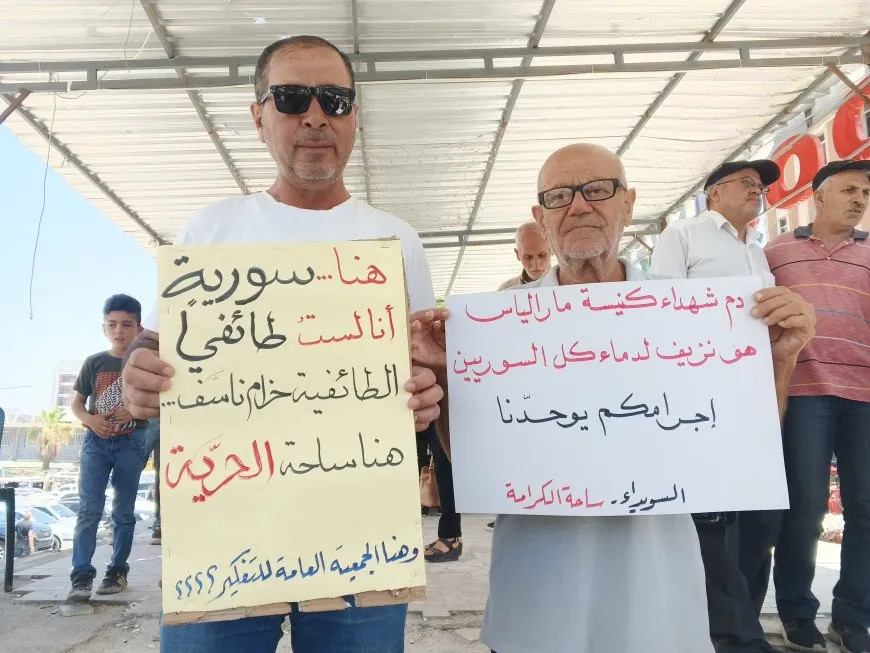 هنا... سورية
أنا لستُ طائفياً
الطائفية حزام ناسف...
هنا ساحة الحرّية
وهنا الجمعية العامة للتفكير؟؟؟؟
دم شهداء كنيسة مار الياس
هو نزيف لدماء كل السوريين
إجرامكم يوحدّنا
السويداء - ساحة الكرامة